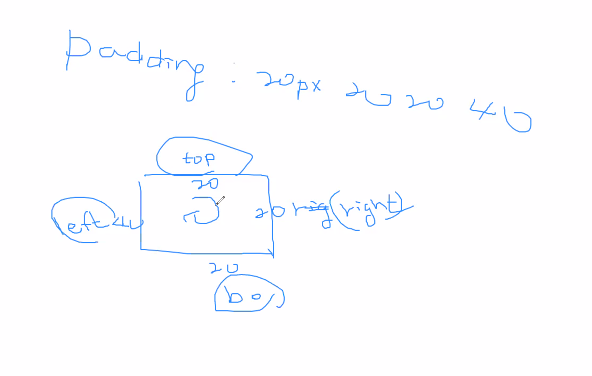 padding : 20px 20 20 40
top
20
left 40 20 rig (right)
20